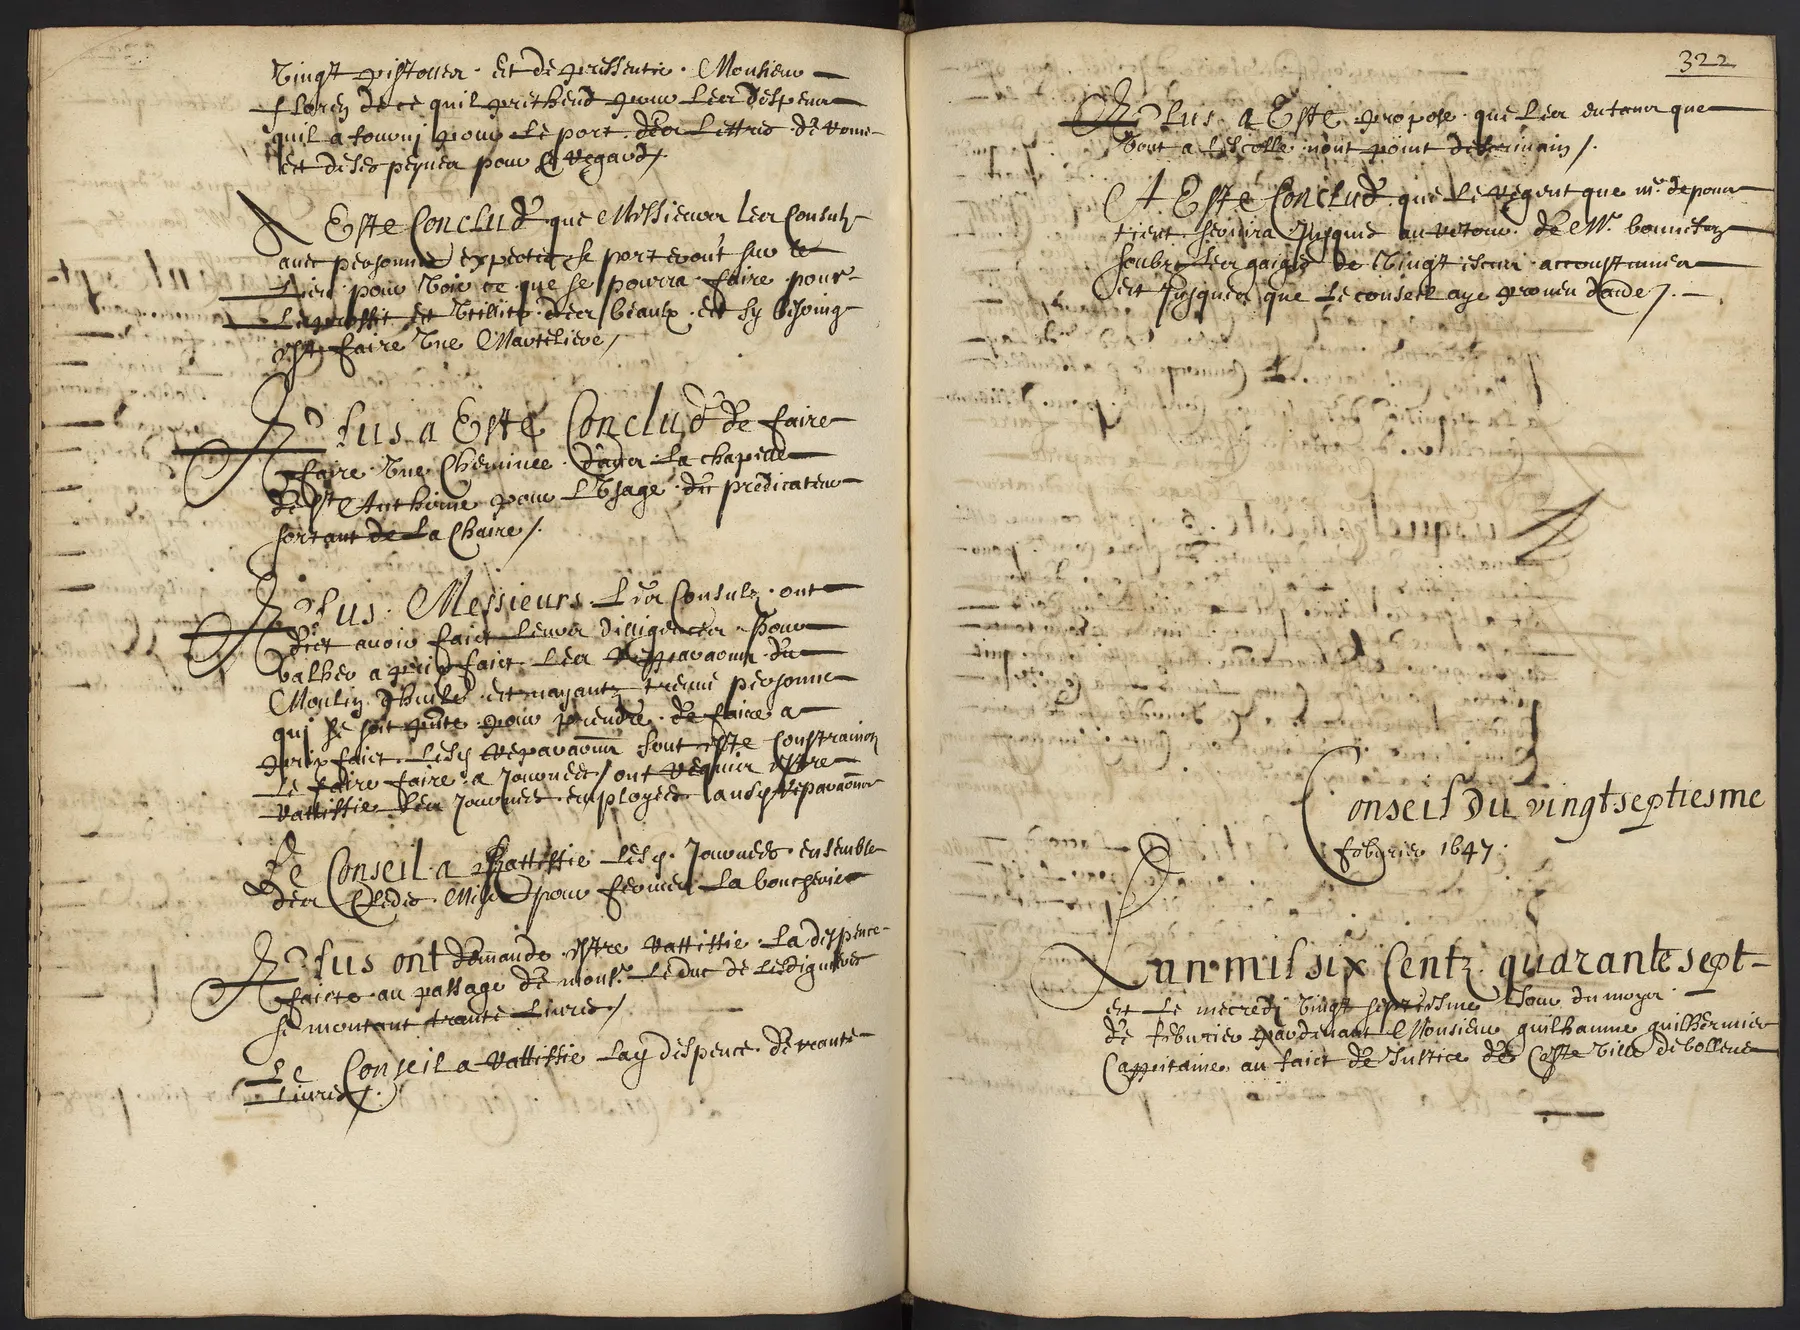 vingt pistolles et de pressentir Monsieur
florez de ce quil prethend pour les despens
quil a fourni pour le port des lettres de rome
et de ses peynes pour ce regard /.
A Esté Conclud que Messieurs les Consulz
avec personnes expertes se porteront sur le
lieu pour voir ce que se pourra faire pour
le proffit et utillité des beaulx et sy besoing
est faire une Marteliere /
Plus a Esté Conclud de faire
faire une Cheminée dans la chapelle
de St Anthoine pour l'usage du predicateur
sortant de la Chaire /.
Plus Messieurs les Consulz ont
dict avoir faict leurs dilligences pour
balher a prix faict les reparaons du
Moulin dhuile et nayantz treuvé personne
qui se soit pnté pour prendre de faire a
prix faict lesd reparaons sont esté constrainctz
le faire faire a journées / ont requis estre
rattiffié les journées employées ausd reparaons
Le Conseil a Rattiffié lesd journées ensemble
des Cledes Mises pour fermer la boucherie
Plus ont demandé estre rattiffié la despence
faicte au passage de monsr le duc de lesdiguieres
se montant trante livres /
Le Conseil a rattiffié lad despence de trante
livres /.
322
Plus a Esté proposé que les enfans que
vont a lescolle nont point descrivain /.
A Esté Conclud que le regent que me depour
tient servira jusques au retour de Mr bonnefoy
soubz les gaiges de vingt escus accoustumés
et jusques que le conseil aye proveu daide /.
Conseil Du vingtseptiesme
febvrier 1647.
Lan mil six Centz quarante sept
et le mecredi vingt septiesme jour du moys
de febvrier pardevant Monsieur guilhaume guilhermier
Cappitaine au faict de Justice de Ceste Ville de bollene